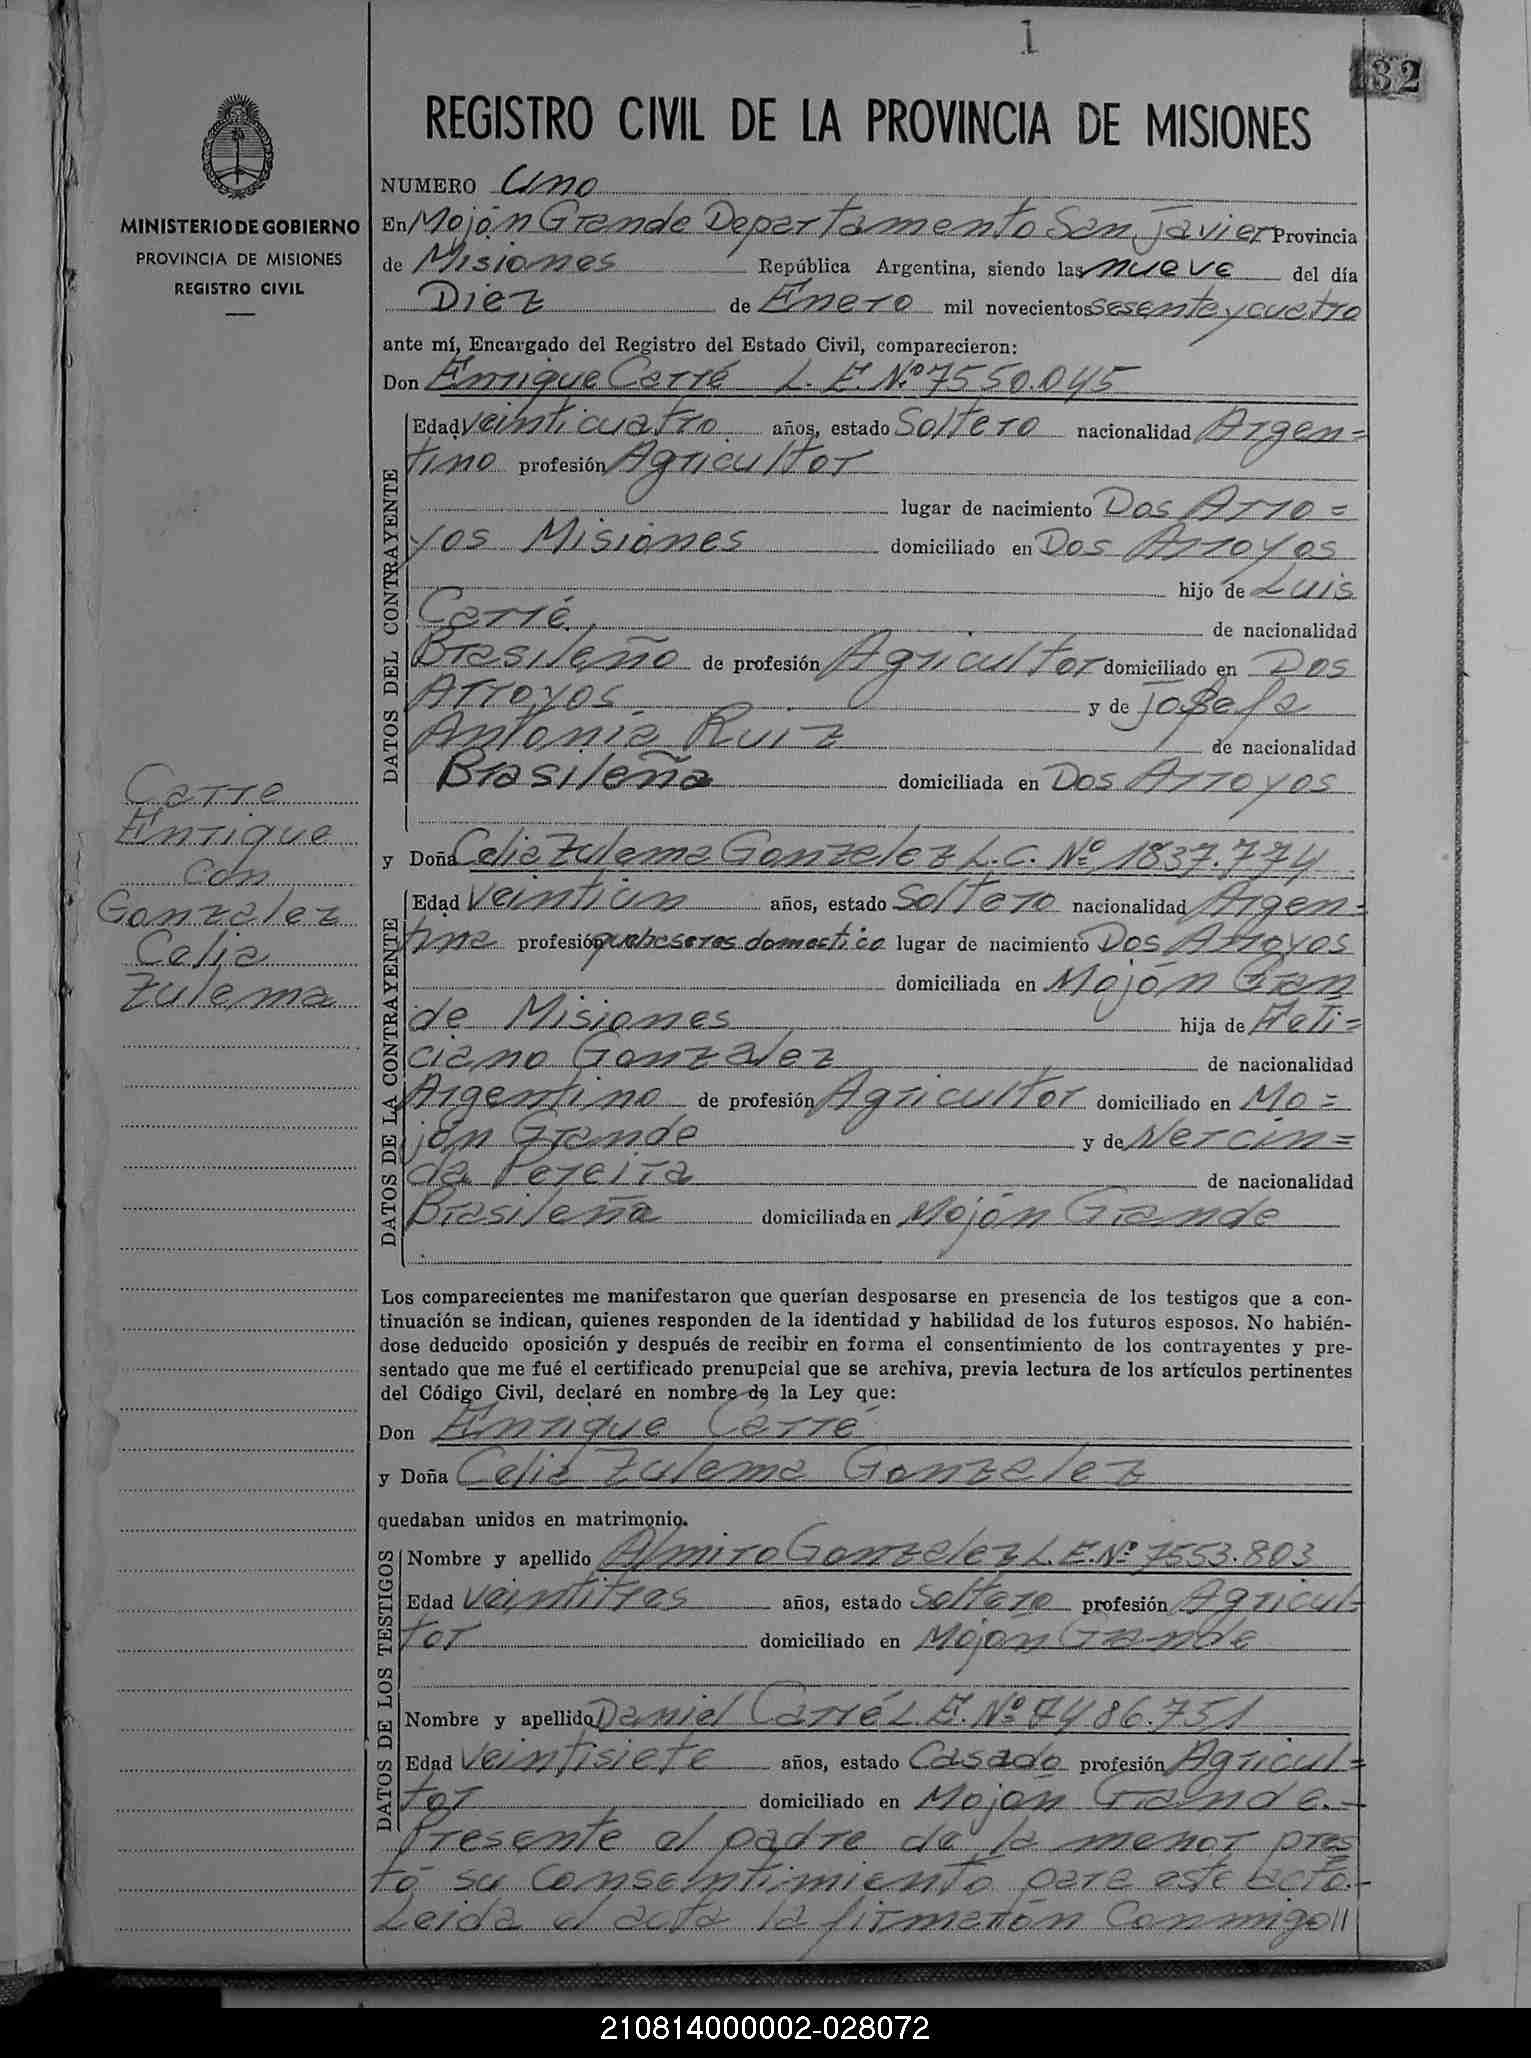 1
32
REGISTRO CIVIL DE LA PROVINCIA DE MISIONES
MINISTERIO DE GOBIERNO
PROVINCIA DE MISIONES
REGISTRO CIVIL
Carre
Enrique
con
Gonzalez
Celia
Zulema
NUMERO Uno
En Mojón Grande Departamento San Javier Provincia
de Misiones República Argentina, siendo las nueve del día
Diez de Enero mil novecientos sesenta y cuatro
ante mí, Encargado del Registro del Estado Civil, comparecieron:
Don Enrique Carré L. E. Nº 7550.045
DATOS DEL CONTRAYENTE
Edad veinticuatro años, estado Soltero nacionalidad Argen=
tino profesión Agricultor
lugar de nacimiento Dos Arro=
yos Misiones domiciliado en Dos Arroyos
hijo de Luis
Carré de nacionalidad
Brasileño de profesión Agricultor domiciliado en Dos
Arroyos y de Josefa
Antonia Ruiz de nacionalidad
Brasileña domiciliada en Dos Arroyos
y Doña Celia Zulema Gonzalez L. C. Nº 1837.774
DATOS DE LA CONTRAYENTE
Edad veintiun años, estado Soltero nacionalidad Argen=
tina profesión domestica lugar de nacimiento Dos Arroyos
domiciliada en Mojón Gran
de Misiones hija de Feli=
ciano Gonzalez de nacionalidad
Argentino de profesión Agricultor domiciliado en Mo=
jón Grande y de Nercin=
da Pereira de nacionalidad
Brasileña domiciliada en Mojón Grande
Los comparecientes me manifestaron que querían desposarse en presencia de los testigos que a con-
tinuación se indican, quienes responden de la identidad y habilidad de los futuros esposos. No habién-
dose deducido oposición y después de recibir en forma el consentimiento de los contrayentes y pre-
sentado que me fué el certificado prenupcial que se archiva, previa lectura de los artículos pertinentes
del Código Civil, declaré en nombre de la Ley que:
Don Enrique Carré
y Doña Celia Zulema Gonzalez
quedaban unidos en matrimonio.
DATOS DE LOS TESTIGOS
Nombre y apellido Almiro Gonzalez L. E. Nº 7553.803
Edad veintitres años, estado Soltero profesión Agricul-
tor domiciliado en Mojón Grande
DATOS DE LOS TESTIGOS
Nombre y apellido Daniel Carré L. E. Nº 7486.751
Edad veintisiete años, estado Casado profesión Agricul=
tor domiciliado en Mojón Grande.-
Presente el padre de la menor pres
tó su consentimiento para este acto.-
Leida el acta la firmarón conmigo//
210814000002-028072